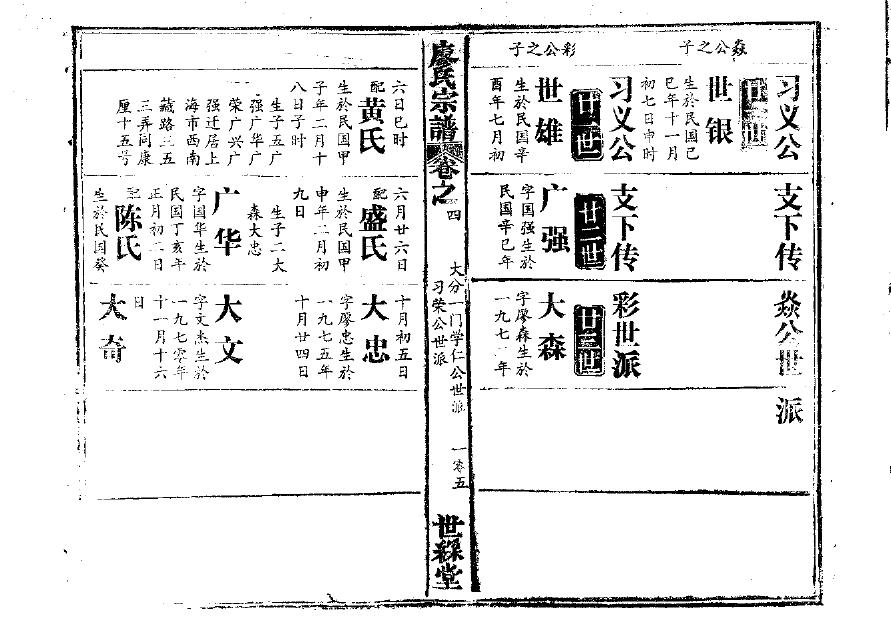 焱公之子
习义公
支下传
焱公世派
世银
生於民国己
巳年十一月
初七日申时
彩公之子
习义公
支下传
彩世派
廿一世
廿二世
廿三世
世雄
生於民国辛
酉年七月初
广强
字国强生於
民国辛巳年
大森
字廖森生於
一九七一年
廖氏宗譜卷之四
大分一门学仁公世派
习荣公世派
一零五
世綵堂
六日巳时
配黄氏
生於民国甲
子年二月十
八日子时
生子五广
强广华广
荣广兴广
强迁居上
海市西南
藏路三五
三弄间康
厘十五号
六月廿六日
配盛氏
生於民国甲
申年二月初
九日
生子二大
森大忠
广华
字国华生於
民国丁亥年
正月初二日
配陈氏
生於民国癸
十月初五日
大忠
字廖忠生於
一九七五年
十月廿四日
大文
字文杰生於
一九七零年
十一月十六
日
大奇